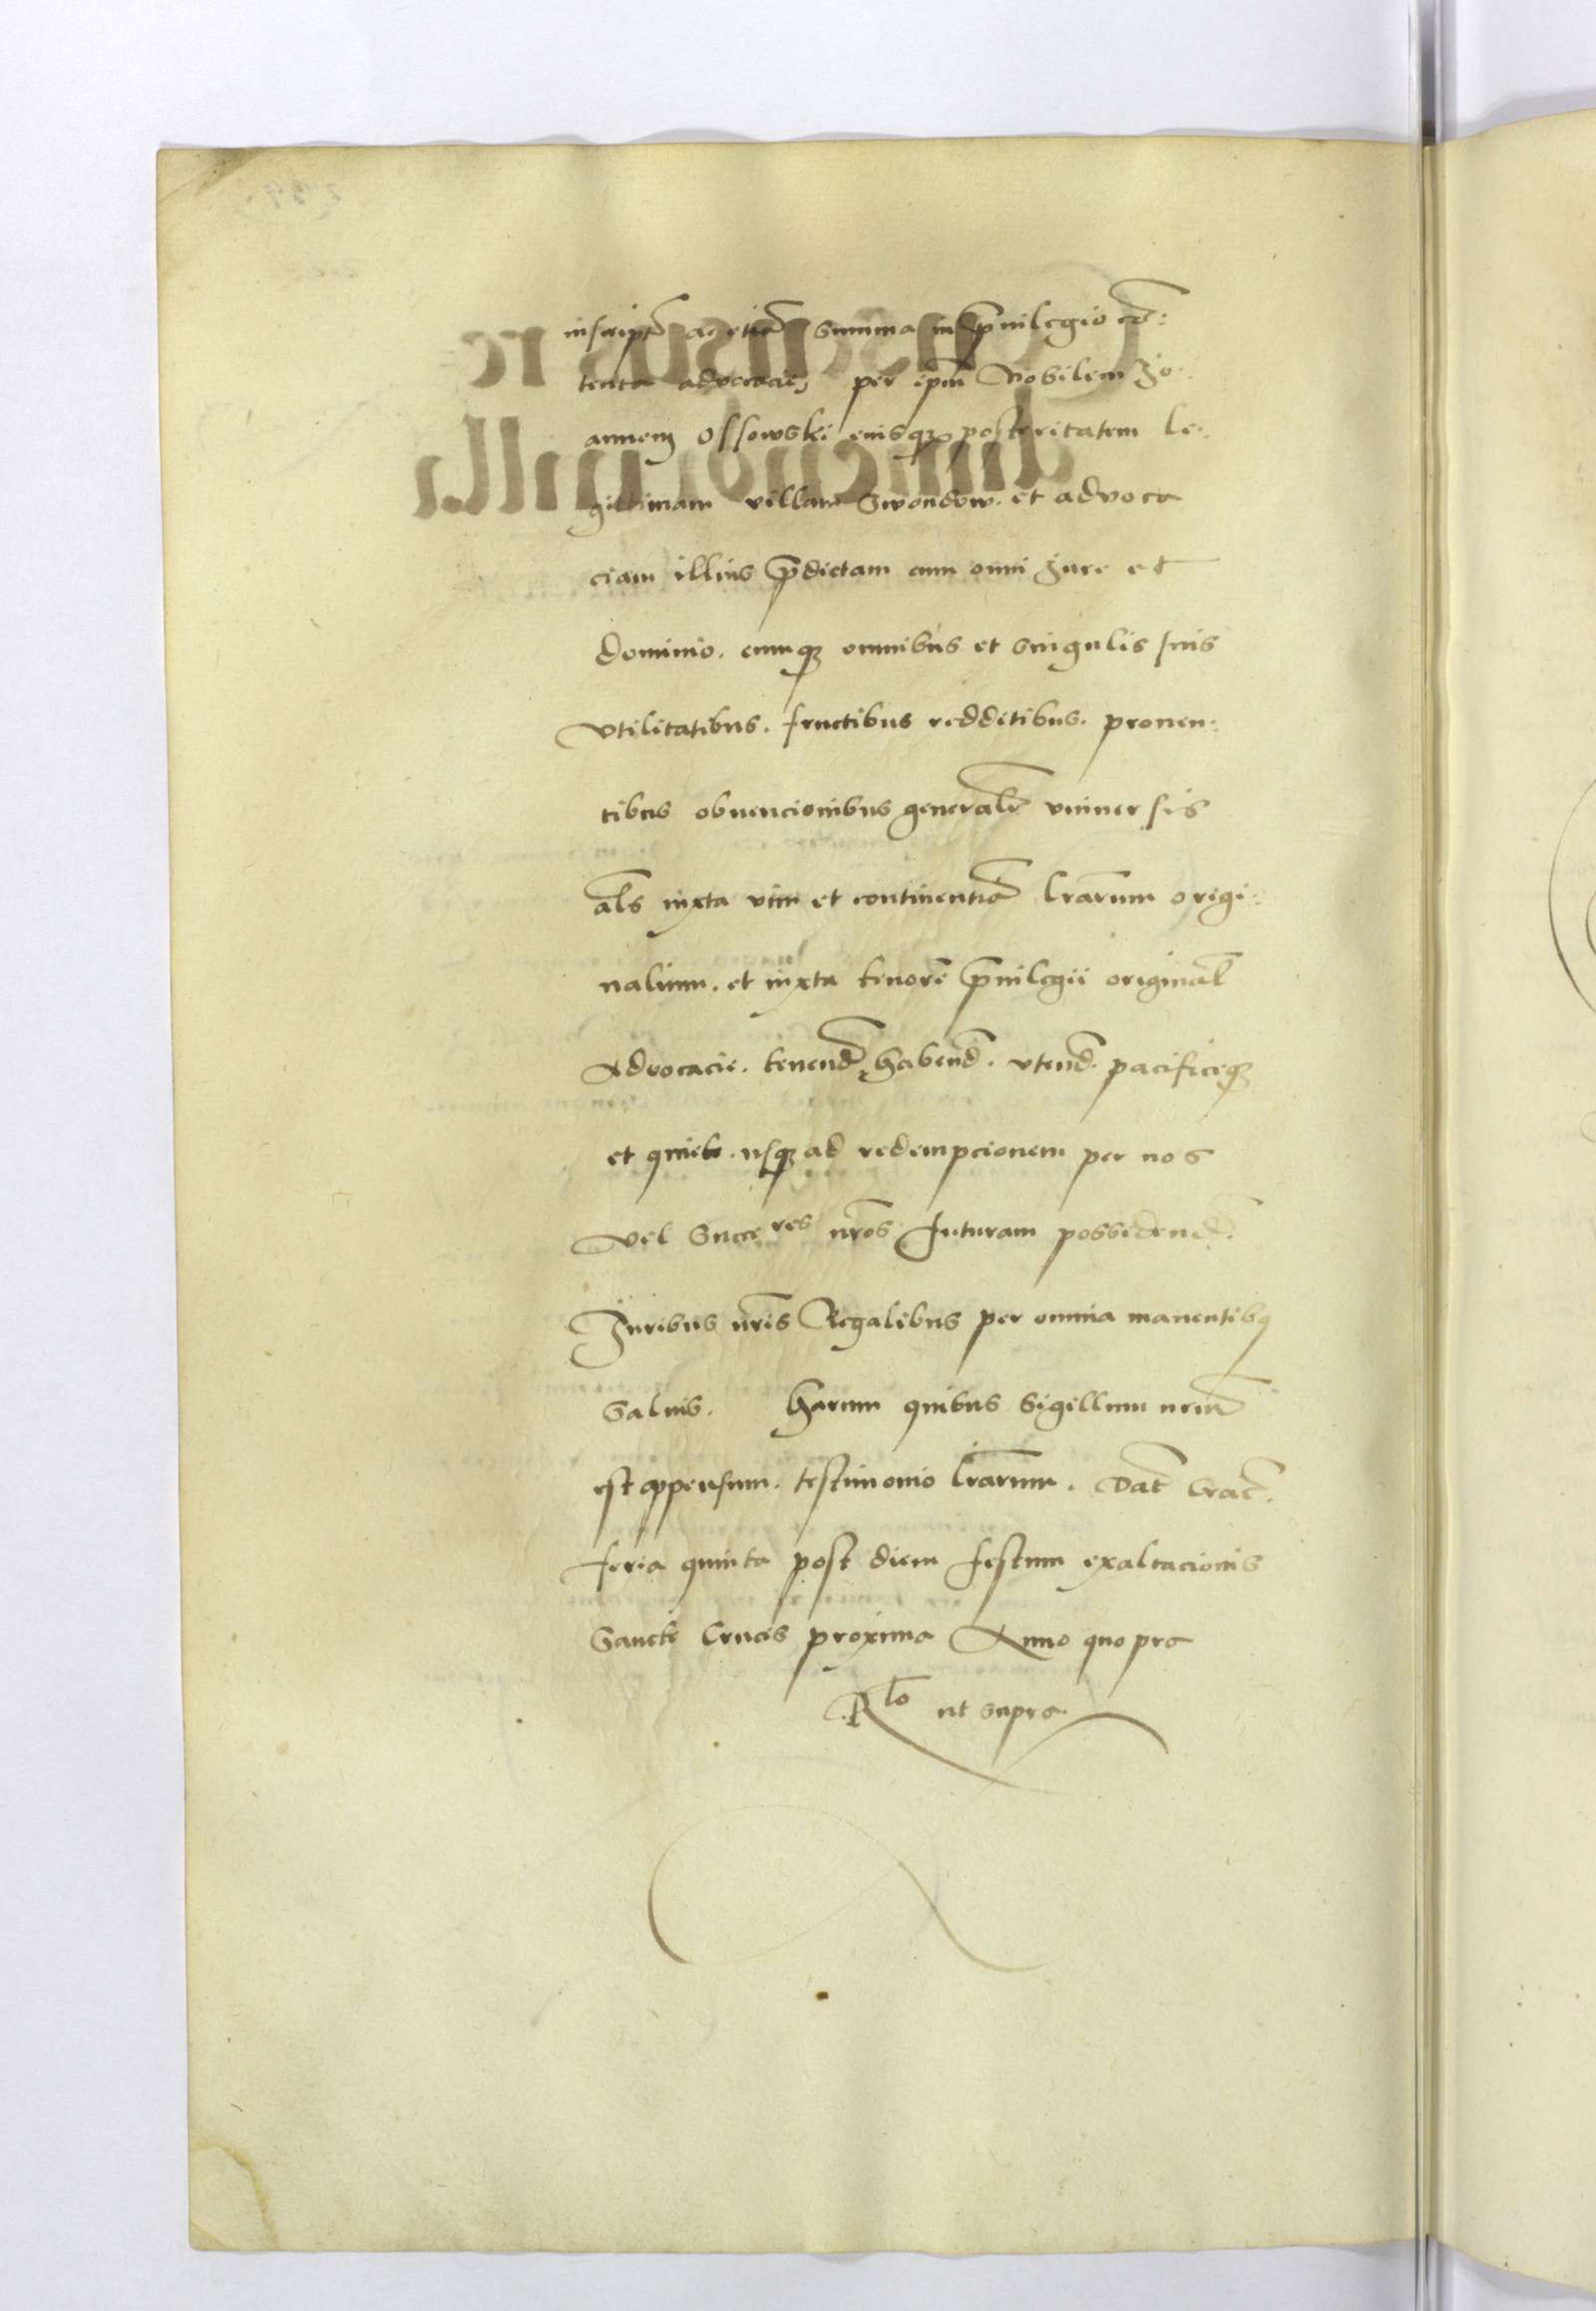 inscript̃ ac etiã summa in p̃uilegio cõ:
tenta advocacie, per ip̃m Nobilem Jo:
annem Ossowski eiusq₃ posteritatem le:
gittimam villam Swondow. et advoca
ciam illius p̃dictam cum omni Jure et
dominio. cumq₃ omnibus et singulis suis
vtilitatibus. fructibus redditibus. prouen:
tibus obuencionibus generalr̃ vniuersis
als̃ iuxta vim et continentiã lr̃arum origi:
nalium. et iuxta tenorẽ p̃uilegii original̃
Advocacie. tenend̃ habend̃. vtend̃. pacificeq₃
et quiete. usq₃ ad redempcionem per nos
vel Succeres nr̃os futuram possidend̃.
Juribus nr̃is Regalibus per omnia manentib9
saluis. Harum quibus sigillum nrũ
est appensum. testimonio lr̃arum. Dat̃ Crac̃.
feria quinta post diem festum exaltacionis
Sancte Crucis proxima Anno quo pra
Rlo ut supra